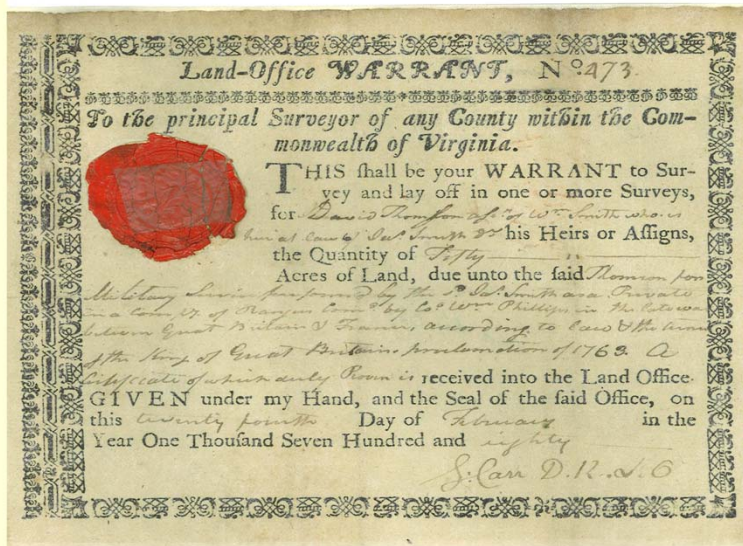 Land-Office WARRANT, No. 473
To the principal Surveyor of any County within the Com-
monwealth of Virginia.
THIS ſhall be your WARRANT to Sur-
vey and lay off in one or more Surveys,
for David Thomson aſs. of Wm. Smith who is
heir at law of Jas. Smith his Heirs or Aſſigns,
the Quantity of Fifty
Acres of Land, due unto the ſaid Thomson for
Military Service performed by the Sd. Jas. Smith as a Private
in a Company of Rangers Com'd by Wm. Phillips in the late war
between Great Britain & France according to law & the terms
of the King of Great Britains proclamation of 1763. A
Certificate of which duly Proven is received into the Land Office.
GIVEN under my Hand, and the Seal of the ſaid Office, on
this twenty fourth Day of February in the
Year One Thouſand Seven Hundred and eighty
S. Carr D. R. L. O